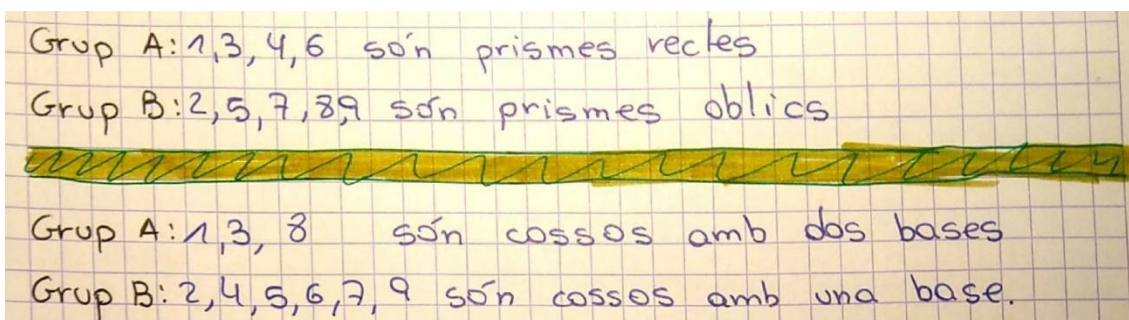 Grup A: 1,3, 4,6 són prismes rectes
Grup B: 2,5,7,8,9 són prismes oblics
Grup A: 1,3, 8 són cossos amb dos bases
Grup B: 2,4,5,6,7,9 són cossos amb una base.